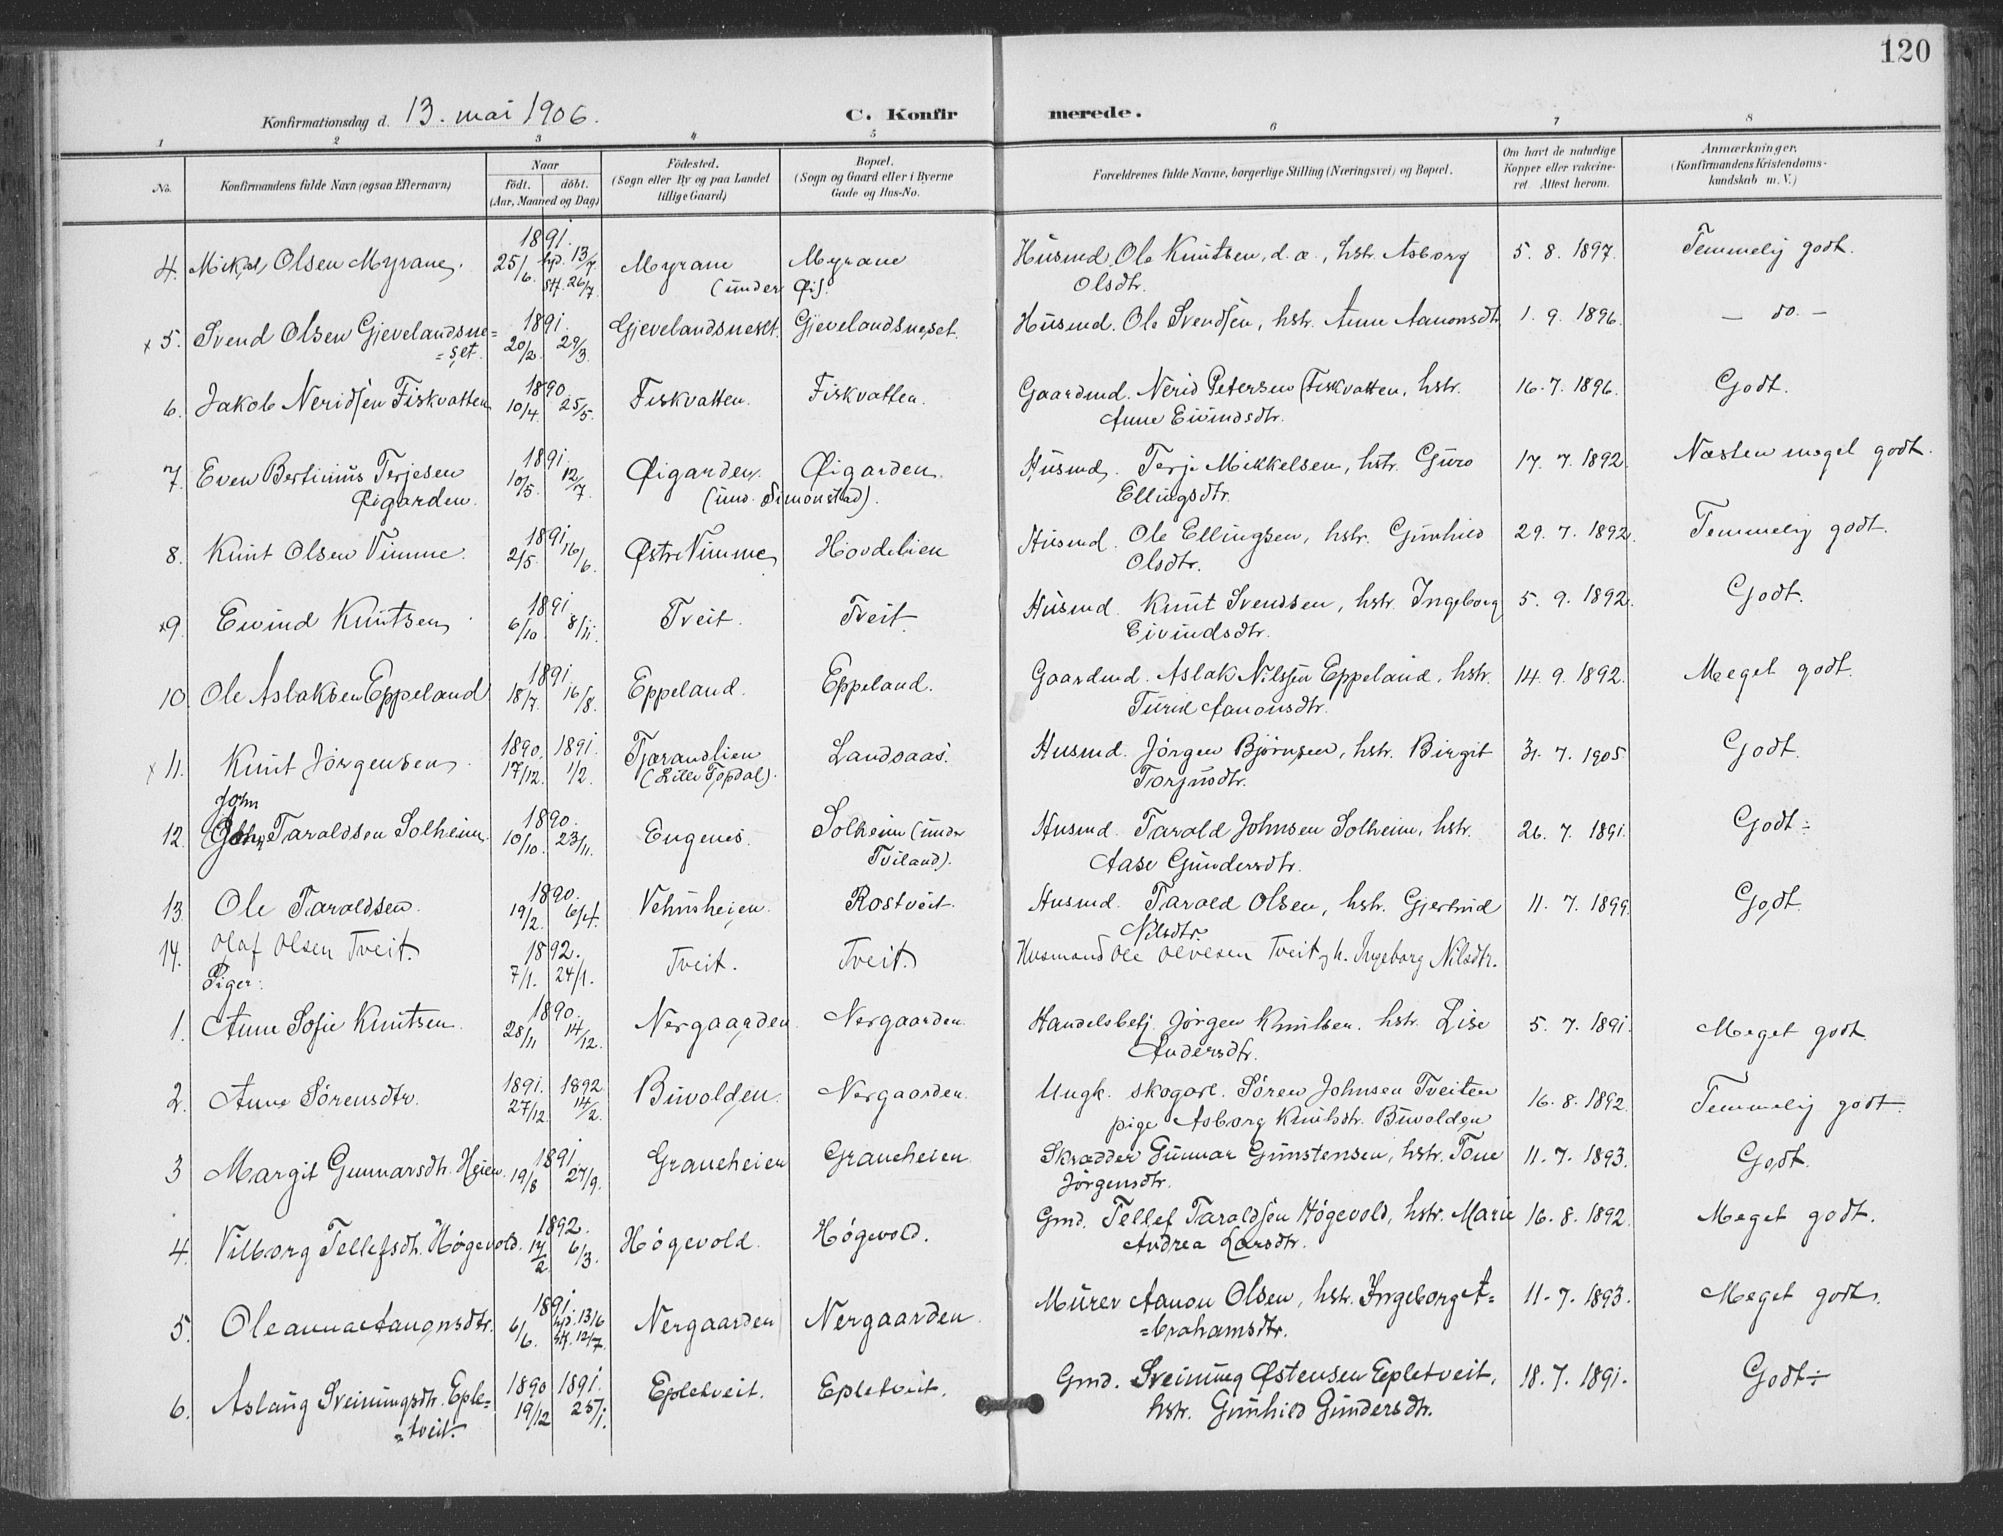 120
Konfirmationsdag d. 13. mai 1906.
C. Konfirmerede.
1 2 3 4 5 6 7 8
No.
Konfirmandens fulde Navn (ogsaa Efternavn)
Naar
født. døbt.
(Aar, Maaned og Dag)
Fødested.
(Sogn eller By og paa Landet
tillige Gaard)
Bopæl.
(Sogn og Gaard eller i Byerne
Gade og Hus-No.
Forældrenes fulde Navne, borgerlige Stilling (Næringsvei) og Bopæl.
Om havt de naturlige
Kopper eller vakcine-
ret. Attest herom.
Anmærkninger,
(Konfirmandens Kristendoms-
kundskab m. V.)
4. Mikal Olsen Myrane. 1891. 25/6. hjd. 13/7 stf. 26/7. Myrane (under Øis. Myrane Husmd. Ole Knutsen, d. a., hstr. Asborg 5. 8. 1897. Temmelig godt.
Olsdtr.
x 5. Svend Olsen Gjevelandsne= 1891. 20/2. 29/3. Gjevelandsneset. Gjevelandsneset. Husmd. Ole Svendsen, hstr. Anne Aanonsdtr. 1. 9. 1896. — do. —
=set.
6. Jakob Neridsen Fiskvatten 1890. 10/4. 25/5. Fiskvatten. Fiskvatten. Gaardmd. Nerid Petersen Fiskvatten, hstr. 16. 7. 1896. Godt.
Anne Eivindsdtr.
7. Even Bertinius Terjesen 1891. 10/5. 12/7. Øigarden. Øigarden. Husmd. Terje Mikkelsen, hstr. Guro 17. 7. 1892. Næsten meget godt.
Øigarden. (und. Simonstad). Ellingsdtr.
8. Knut Olsen Vimme. 1891. 2/5. 16/6. Østre Vimme Hovdelien Husmd. Ole Ellingsen, hstr. Gunhild 29. 7. 1892. Temmelig godt.
Olsdtr.
x9. Eivind Knutsen. 1891. 6/10. 8/11. Tveit. Tveit. Husmd. Knut Svendsen, hstr. Ingeborg 5. 9. 1892. Godt.
Eivindsdtr.
10. Ole Aslaksen Eppeland 1891. 18/7. 16/8. Eppeland. Eppeland. Gaardmd. Aslak Nilssen Eppeland, hstr. 14. 9. 1892. Meget godt.
Turid Aanonsdtr.
x 11. Knut Jørgensen. 1890. 17/12. 1891. 1/2. Tjærandlien Landsaas. Husmd. Jørgen Bjørnsen, hstr. Birgit 31. 7. 1905. Godt.
(Lille Topdal). Torjusdtr.
John
12. Taraldsen Solheim 1890. 10/10. 23/11. Eugenes. Solheim (under Husmd. Tarald Johnsen Solheim, hstr. 26. 7. 1891. Godt ÷
Tviland). Aase Gundersdtr.
13. Ole Taraldsen. 1890. 19/2. 6/4. Vehusheien. Rostveit. Husmd. Tarald Olsen, hstr. Gjertrud 11. 7. 1899. Godt.
Nilsdtr.
14. Olaf Olsen Tveit. 1892. 7/1. 24/1. Tveit. Tveit. Husmand Ole Olvesen Tveit, h. Ingeborg Nilsdtr.
Piger:
1. Anne Sofie Knutsen. 1890. 28/11 14/12. Nergaarden Nergaarden. Handelsbetj. Jørgen Knutsen. hstr. Lise 5. 7. 1891. Meget godt.
Andersdtr.
2. Anne Sørensdtr. 1891. 27/12 1892 14/2. Buvolden. Nergaarden. Ungk. skogarb. Søren Johnsen Tveiten 16. 8. 1892. Temmelig godt.
pige Asborg Knutsdtr. Buvolden
3 Margit Gunnarsdtr. Heien. 1891. 19/8 27/9. Graneheien Graneheien Skrædder Gunnar Gunstensen, hstr. Tone 11. 7. 1893. Godt.
Jørgensdtr.
4. Vilborg Tellefsdtr. Høgevold. 1892. 14/2 6/3. Høgevold. Høgevold. Gmd. Tellef Taraldsen Høgevold, hstr. Marie 16. 8. 1892. Meget godt.
Andrea Larsdtr.
5. Oleanna Aanonsdtr. 1891. 6/6. hjd. 13/6 stf. 12/7. Nergaarden Nergaarden. Murer Aanon Olsen, hstr. Ingeborg A= 11. 7. 1893. Meget godt.
=brahamsdtr.
6. Aslaug Sveinungsdtr. Eple= 1890 19/12 1891. 25/1. Epletveit. Epletveit. Gmd. Sveinung Østensen Epletveit, 18. 7. 1891. Godt ÷
=tveit. hstr. Gunhild Gundersdtr.